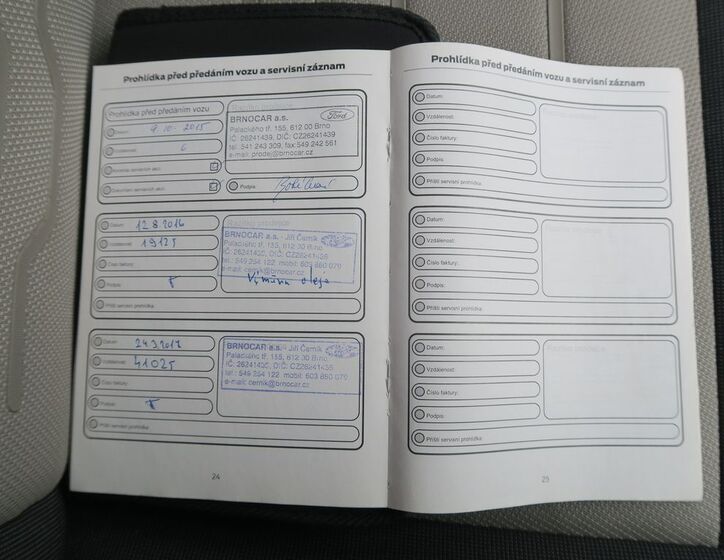 Prohlídka před předáním vozu a servisní záznam
Prohlídka před předáním vozu
Datum: 9.10.2015
Vzdálenost: 6
BRNOCAR a.s.
Ford
Palackého tř. 155, 612 00 Brno
IČ: 26241439, DIČ: CZ26241439
tel: 541 243 309, fax:549 242 561
e-mail: prodej@brnocar.cz
Podpis:
Datum: 12.8.2016
Vzdálenost: 19125
Číslo faktury:
Podpis:
Příští servisní prohlídka:
BRNOCAR a.s. - Jiří Černík
Palackého tř. 155, 612 00 Brno
IČ: 26241439, DIČ: CZ26241439
tel.: 549 254 122 mobil: 603 860 070
e-mail: cernik@brnocar.cz
Výměna oleje
Datum: 24.3.2017
Vzdálenost: 41025
Číslo faktury:
Podpis:
Příští servisní prohlídka:
BRNOCAR a.s. - Jiří Černík
Palackého tř. 155, 612 00 Brno
IČ: 26241439, DIČ: CZ26241439
tel.: 549 254 122 mobil: 603 860 070
e-mail: cernik@brnocar.cz
24
Prohlídka před předáním vozu a servisní záznam
Datum:
Vzdálenost:
Číslo faktury:
Podpis:
Příští servisní prohlídka:
Datum:
Vzdálenost:
Číslo faktury:
Podpis:
Příští servisní prohlídka:
Datum:
Vzdálenost:
Číslo faktury:
Podpis:
Příští servisní prohlídka:
25